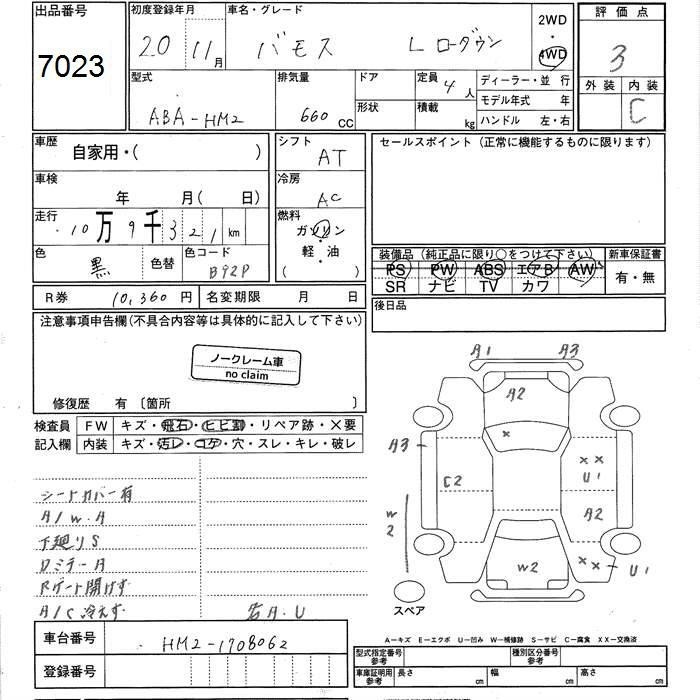 出品番号
7023
初度登録年月
20 11月
車名・グレード
バモス Lローダウン
2WD
4WD
評価点
3
外装 内装
C
型式
ABA-HM2
排気量
660 CC
ドア
形状
定員 4人
積載 kg
ディーラー・並 行
モデル年式 年
ハンドル 左・右
車歴
自家用・( )
シフト
AT
セールスポイント (正常に機能するものに限ります)
車検
年 月( 日)
冷房
AC
走行
10万9千321km
燃料
ガソリン
・
軽・油
( )
色
黒
色替
色コード
B92P
装備品 (純正品に限り○をつけて下さい)
PS PW ABS エアB AW
SR ナビ TV カワ
新車保証書
有・無
R券 10,360円
名変期限 月 日
後日品
注意事項申告欄(不具合内容等は具体的に記入して下さい)
ノークレーム車
no claim
修復歴 有 〔箇所 〕
検査員
記入欄
FW キズ・飛石・ヒビ割・リペア跡・×要
内装 キズ・汚レ・コゲ・穴・スレ・キレ・破レ
シートカバー有
A/W・A
下廻りS
ロミラーA
Rゲート開けず
A/C冷えず
右A・U
A1 A3
A2
×
A3
C2
××
U1
A2
W2
××
U1
W2
スペア
A-キズ E-エクボ U-凹み W-補修跡 S-サビ C-腐食 XX-交換済
車台番号
HM2-1708062
登録番号
型式指定番号
参考
種別区分番号
参考
車庫証明用
参考
長さ cm
幅 cm
高さ cm